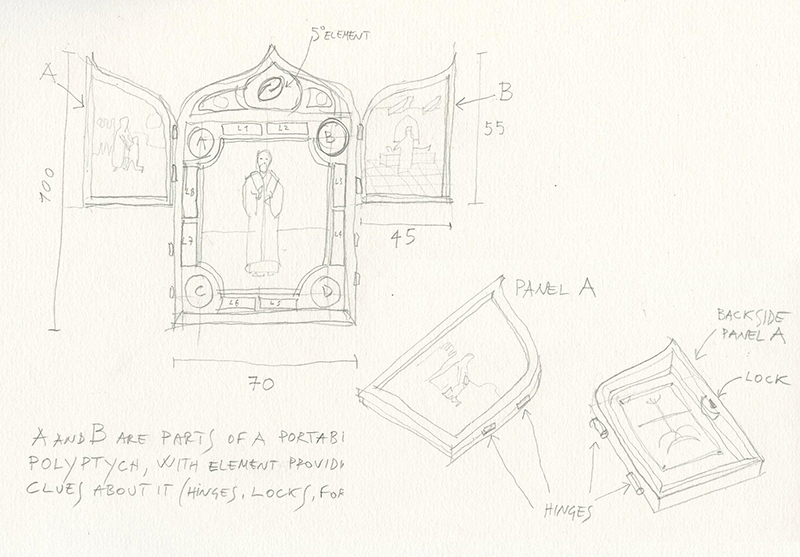 5° ELEMENT
A
B
100
55
L1 L2
A
B
L8
L3
L7
L4
C
D
L6 L5
45
70
PANEL A
BACKSIDE
PANEL A
LOCK
HINGES
A AND B ARE PARTS OF A PORTABI
POLYPTYCH, WITH ELEMENT PROVIDI
CLUES ABOUT IT (HINGES, LOCKS, FOR